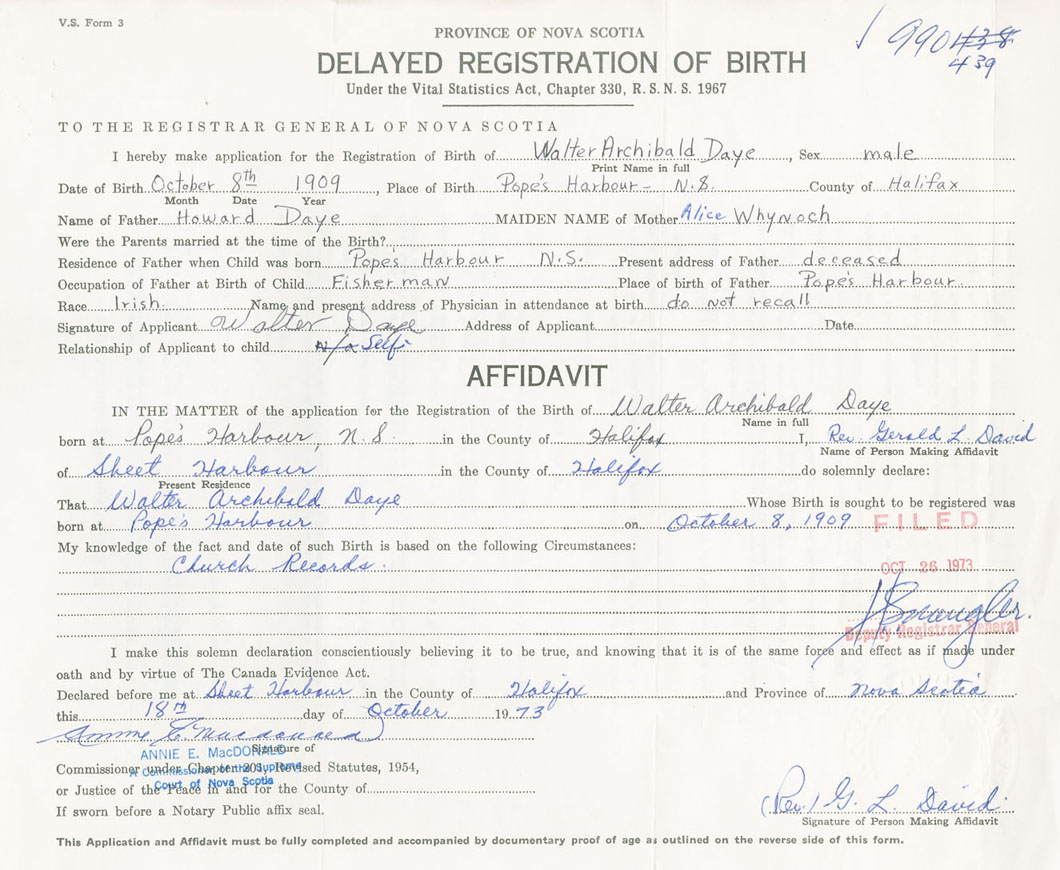 V.S. Form 3
990438
439
PROVINCE OF NOVA SCOTIA
DELAYED REGISTRATION OF BIRTH
Under the Vital Statistics Act, Chapter 330, R.S.N.S. 1967
TO THE REGISTRAR GENERAL OF NOVA SCOTIA
I hereby make application for the Registration of Birth of Walter Archibald Daye, Sex male
Print Name in full
Date of Birth October 8th 1909, Place of Birth Pope's Harbour - N.S. County of Halifax
Month Date Year
Name of Father Howard Daye MAIDEN NAME of Mother Alice Whynoch
Were the Parents married at the time of the Birth?
Residence of Father when Child was born Popes Harbour N.S. Present address of Father deceased
Occupation of Father at Birth of Child Fisherman Place of birth of Father Pope's Harbour.
Race Irish. Name and present address of Physician in attendance at birth do not recall
Signature of Applicant Walter Daye Address of Applicant Date
Relationship of Applicant to child n/a Self.
AFFIDAVIT
IN THE MATTER of the application for the Registration of the Birth of Walter Archibald Daye
Name in full
born at Pope's Harbour, N.S. in the County of Halifax I, Rev. Gerald L. David
Name of Person Making Affidavit
of Sheet Harbour in the County of Halifax do solemnly declare:
Present Residence
That Walter Archibald Daye Whose Birth is sought to be registered was
born at Pope's Harbour on October 8, 1909 FILED
My knowledge of the fact and date of such Birth is based on the following Circumstances:
Church Records.
OCT 26 1973
Deputy Registrar General
I make this solemn declaration conscientiously believing it to be true, and knowing that it is of the same force and effect as if made under
oath and by virtue of The Canada Evidence Act.
Declared before me at Sheet Harbour in the County of Halifax and Province of Nova Scotia
this 18th day of October 1973
Annie E. MacDonald
Signature of
ANNIE E. MacDONALD
Commissioner under Chapter 201, Revised Statutes, 1954,
A Commissioner of the Supreme
Court of Nova Scotia
or Justice of the Peace in and for the County of
If sworn before a Notary Public affix seal.
(Rev.) G. L. David.
Signature of Person Making Affidavit
This Application and Affidavit must be fully completed and accompanied by documentary proof of age as outlined on the reverse side of this form.